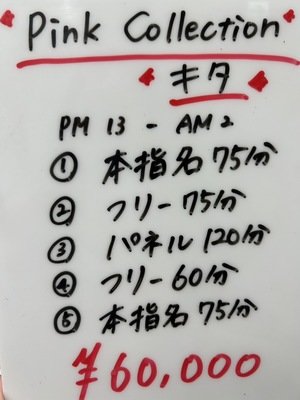 Pink Collection
キタ
PM 13 - AM 2
① 本指名 75分
② フリー 75分
③ パネル 120分
④ フリー 60分
⑤ 本指名 75分
¥60,000